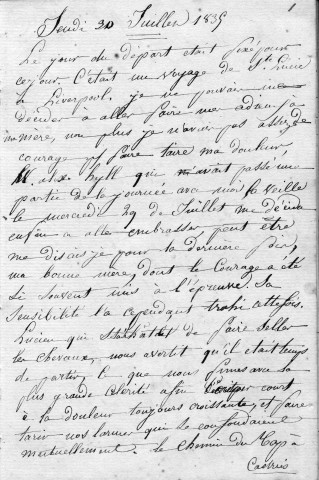 1
Jeudi 30 Juillet 1835
Le jour du départ etait fixé pour
ce jour. C'était un voyage de Ste Lucie
à Liverpool. je ne pouvais me
décider a aller faire me adieux a
ma mère, non plus je n'avais pas assez de
courage pr faire taire ma douleur,
M. et Hyll qui avait passé une
partie de la journée avec moi la veille
le mercredi 29 de Juillet me décida
enfin a aller embrasser, peut être
me disais-je pour la dernière fois,
ma bonne mère, dont le courage a été
si souvent mis à l'épreuve. Sa
sensibilité l'a cependant trahi cette fois.
Lucien qui de faire seller
les chevaux, nous avertit qu'il etait temps
de partir, ce que nous fimes avec la
plus grande célérité afin couper court
à la douleur toujours croissante, et faire
tarir nos larmes qui se confondaient
mutuellement. le chemin du Cap à
Castries